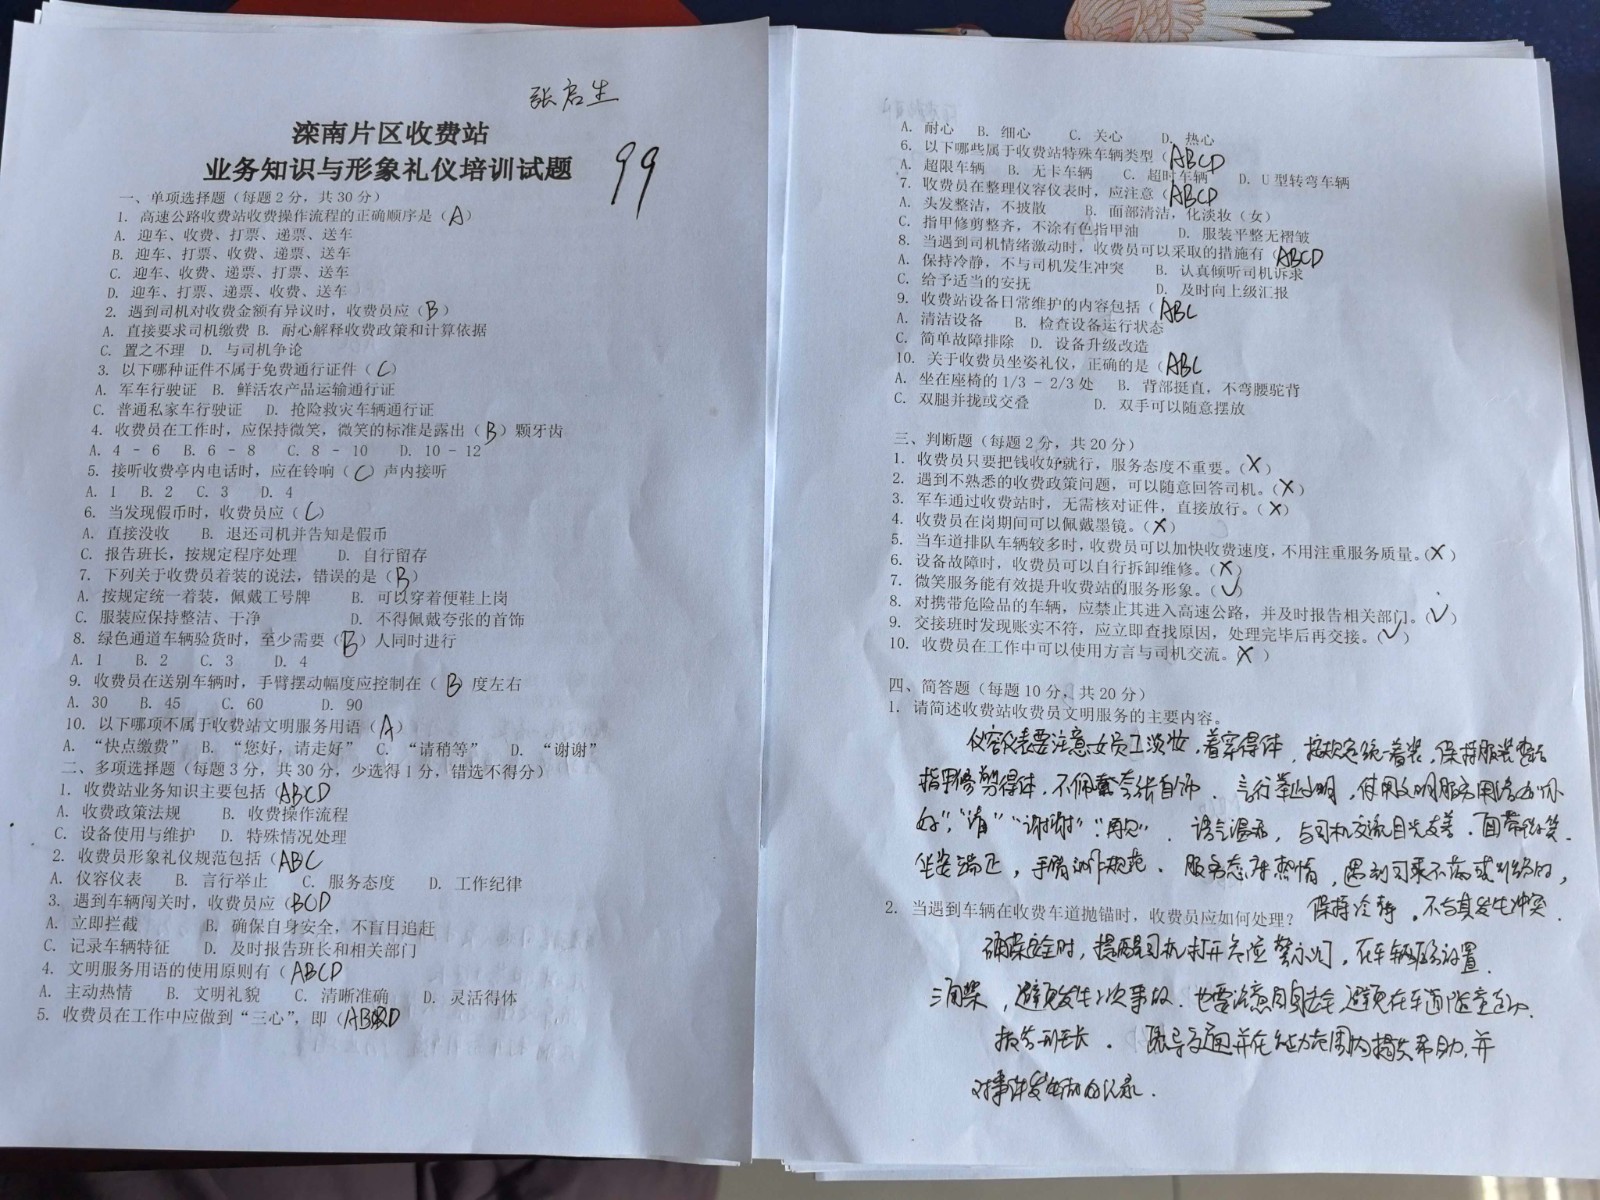 张启生
滦南片区收费站
业务知识与形象礼仪培训试题
99
一、单项选择题（每题2分，共30分）
1. 高速公路收费站收费操作流程的正确顺序是（A）
A. 迎车、收费、打票、递票、送车
B. 迎车、打票、收费、递票、送车
C. 迎车、收费、递票、打票、送车
D. 迎车、打票、递票、收费、送车
2. 遇到司机对收费金额有异议时，收费员应（B）
A. 直接要求司机缴费 B. 耐心解释收费政策和计算依据
C. 置之不理 D. 与司机争论
3. 以下哪种证件不属于免费通行证件（C）
A. 军车行驶证 B. 鲜活农产品运输通行证
C. 普通私家车行驶证 D. 抢险救灾车辆通行证
4. 收费员在工作时，应保持微笑，微笑的标准是露出（B）颗牙齿
A. 4 - 6 B. 6 - 8 C. 8 - 10 D. 10 - 12
5. 接听收费亭内电话时，应在铃响（C）声内接听
A. 1 B. 2 C. 3 D. 4
6. 当发现假币时，收费员应（C）
A. 直接没收 B. 退还司机并告知是假币
C. 报告班长，按规定程序处理 D. 自行留存
7. 下列关于收费员着装的说法，错误的是（B）
A. 按规定统一着装，佩戴工号牌 B. 可以穿着便鞋上岗
C. 服装应保持整洁、干净 D. 不得佩戴夸张的首饰
8. 绿色通道车辆验货时，至少需要（B）人同时进行
A. 1 B. 2 C. 3 D. 4
9. 收费员在送别车辆时，手臂摆动幅度应控制在（B 度左右
A. 30 B. 45 C. 60 D. 90
10. 以下哪项不属于收费站文明服务用语（A）
A. “快点缴费” B. “您好，请走好” C. “请稍等” D. “谢谢”
二、多项选择题（每题3分，共30分，少选得1分，错选不得分）
1. 收费站业务知识主要包括（ABCD
A. 收费政策法规 B. 收费操作流程
C. 设备使用与维护 D. 特殊情况处理
2. 收费员形象礼仪规范包括（ABC
A. 仪容仪表 B. 言行举止 C. 服务态度 D. 工作纪律
3. 遇到车辆闯关时，收费员应（BCD
A. 立即拦截 B. 确保自身安全，不盲目追赶
C. 记录车辆特征 D. 及时报告班长和相关部门
4. 文明服务用语的使用原则有（ABCD
A. 主动热情 B. 文明礼貌 C. 清晰准确 D. 灵活得体
5. 收费员在工作中应做到“三心”，即（
A. 耐心 B. 细心 C. 关心 D. 热心
6. 以下哪些属于收费站特殊车辆类型（ABCD
A. 超限车辆 B. 无卡车辆 C. 超时车辆 D. U型转弯车辆
7. 收费员在整理仪容仪表时，应注意（ABCD
A. 头发整洁，不披散 B. 面部清洁，化淡妆（女）
C. 指甲修剪整齐，不涂有色指甲油 D. 服装平整无褶皱
8. 当遇到司机情绪激动时，收费员可以采取的措施有（ABCD
A. 保持冷静，不与司机发生冲突 B. 认真倾听司机诉求
C. 给予适当的安抚 D. 及时向上级汇报
9. 收费站设备日常维护的内容包括（ABC
A. 清洁设备 B. 检查设备运行状态
C. 简单故障排除 D. 设备升级改造
10. 关于收费员坐姿礼仪，正确的是（ABC
A. 坐在座椅的1/3 - 2/3处 B. 背部挺直，不弯腰驼背
C. 双腿并拢或交叠 D. 双手可以随意摆放
三、判断题（每题2分，共20分）
1. 收费员只要把钱收好就行，服务态度不重要。（X）
2. 遇到不熟悉的收费政策问题，可以随意回答司机。（X）
3. 军车通过收费站时，无需核对证件，直接放行。（X）
4. 收费员在岗期间可以佩戴墨镜。（X）
5. 当车道排队车辆较多时，收费员可以加快收费速度，不用注重服务质量。（X）
6. 设备故障时，收费员可以自行拆卸维修。（X）
7. 微笑服务能有效提升收费站的服务形象。（✓）
8. 对携带危险品的车辆，应禁止其进入高速公路，并及时报告相关部门。（✓）
9. 交接班时发现账实不符，应立即查找原因，处理完毕后再交接。（✓）
10. 收费员在工作中可以使用方言与司机交流。（X ）
四、简答题（每题10分，共20分）
1. 请简述收费站收费员文明服务的主要内容。
仪容仪表要注意女员工淡妆，着穿得体，按规定统一着装，保持服装整洁
指甲修剪得体，不佩戴夸张首饰。言行举止文明，使用文明服务用语如“你
好”，“请”“谢谢”“再见”。语气温和，与司机交流目光友善，面带微笑。
坐姿端正，手臂动作规范。服务态度热情，遇到司乘不满或纠纷时，
保持冷静，不与其发生冲突。
2. 当遇到车辆在收费车道抛锚时，收费员应如何处理？
确保安全时，提醒司机打开危险警示灯，在车辆后方设置
三角架，避免发生二次事故。也要注意自身安全避免在车道随意走动。
报告班长。疏导交通并在能力范围内提供帮助，并
对事件发生做好记录。